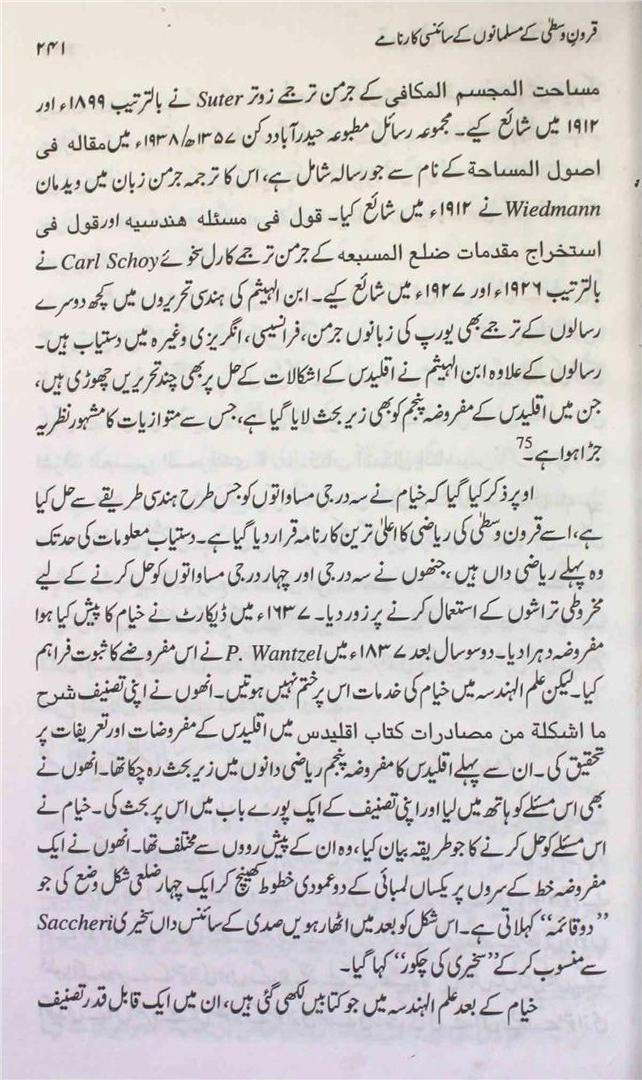 قرونِ وسطیٰ کے مسلمانوں کے سائنسی کارنامے
۲۴۱
مساحت المجسم المکافی کے جرمن ترجمے زوتر Suter نے بالترتیب ۱۸۹۹ء اور
۱۹۱۲ میں شائع کیے۔ مجموعہ رسائل مطبوعہ حیدرآباد دکن ۱۳۵۷ھ/۱۹۳۸ء میں مقالہ فی
اصول المساحة کے نام سے جو رسالہ شامل ہے، اس کا ترجمہ جرمن زبان میں ویدمان
Wiedmann نے ۱۹۱۲ء میں شائع کیا۔ قول فی مسئلہ ھندسیہ اور قول فی
استخراج مقدمات ضلع المسبعہ کے جرمن ترجمے کارل سخوئے Carl Schoy نے
بالترتیب ۱۹۲۶ء اور ۱۹۲۷ء میں شائع کیے۔ ابن الہیثم کی ہندسی تحریروں میں کچھ دوسرے
رسالوں کے ترجمے بھی یورپ کی زبانوں جرمن، فرانسیسی، انگریزی وغیرہ میں دستیاب ہیں۔
رسالوں کے علاوہ ابن الہیثم نے اقلیدس کے اشکالات کے حل پر بھی چند تحریریں چھوڑی ہیں،
جن میں اقلیدس کے مفروضہ پنجم کو بھی زیر بحث لایا گیا ہے، جس سے متوازیات کا مشہور نظریہ
جڑا ہوا ہے۔75
اوپر ذکر کیا گیا کہ خیام نے سہ درجی مساواتوں کو جس طرح ہندسی طریقے سے حل کیا
ہے، اسے قرونِ وسطیٰ کی ریاضی کا اعلیٰ ترین کارنامہ قرار دیا گیا ہے۔ دستیاب معلومات کی حد تک
وہ پہلے ریاضی داں ہیں، جنھوں نے سہ درجی اور چہار درجی مساواتوں کو حل کرنے کے لیے
مخروطی تراشوں کے استعمال کرنے پر زور دیا۔ ۱۶۳۷ء میں ڈیکارٹ نے خیام کا پیش کیا ہوا
مفروضہ دہرا دیا۔ دو سو سال بعد ۱۸۳۷ء میں P. Wantzel نے اس مفروضے کا ثبوت فراہم
کیا۔ لیکن علم الہندسہ میں خیام کی خدمات اس پر ختم نہیں ہوتیں۔ انھوں نے اپنی تصنیف شرح
ما اشکلة من مصادرات کتاب اقلیدس میں اقلیدس کے مفروضات اور تعریفات پر
تحقیق کی۔ ان سے پہلے اقلیدس کا مفروضہ پنجم ریاضی دانوں میں زیر بحث رہ چکا تھا۔ انھوں نے
بھی اس مسئلے کو ہاتھ میں لیا اور اپنی تصنیف کے ایک پورے باب میں اس پر بحث کی۔ خیام نے
اس مسئلے کو حل کرنے کا جو طریقہ بیان کیا، وہ ان کے پیش رووں سے مختلف تھا۔ انھوں نے ایک
مفروضہ خط کے سروں پر یکساں لمبائی کے دو عمودی خطوط کھینچ کر ایک چہار ضلعی شکل وضع کی جو
”دو قائمہ“ کہلاتی ہے۔ اس شکل کو بعد میں اٹھارہویں صدی کے سائنس داں سخیری Saccheri
سے منسوب کر کے ”سخیری کی چکور“ کہا گیا۔
خیام کے بعد علم الہندسہ میں جو کتابیں لکھی گئی ہیں، ان میں ایک قابل قدر تصنیف